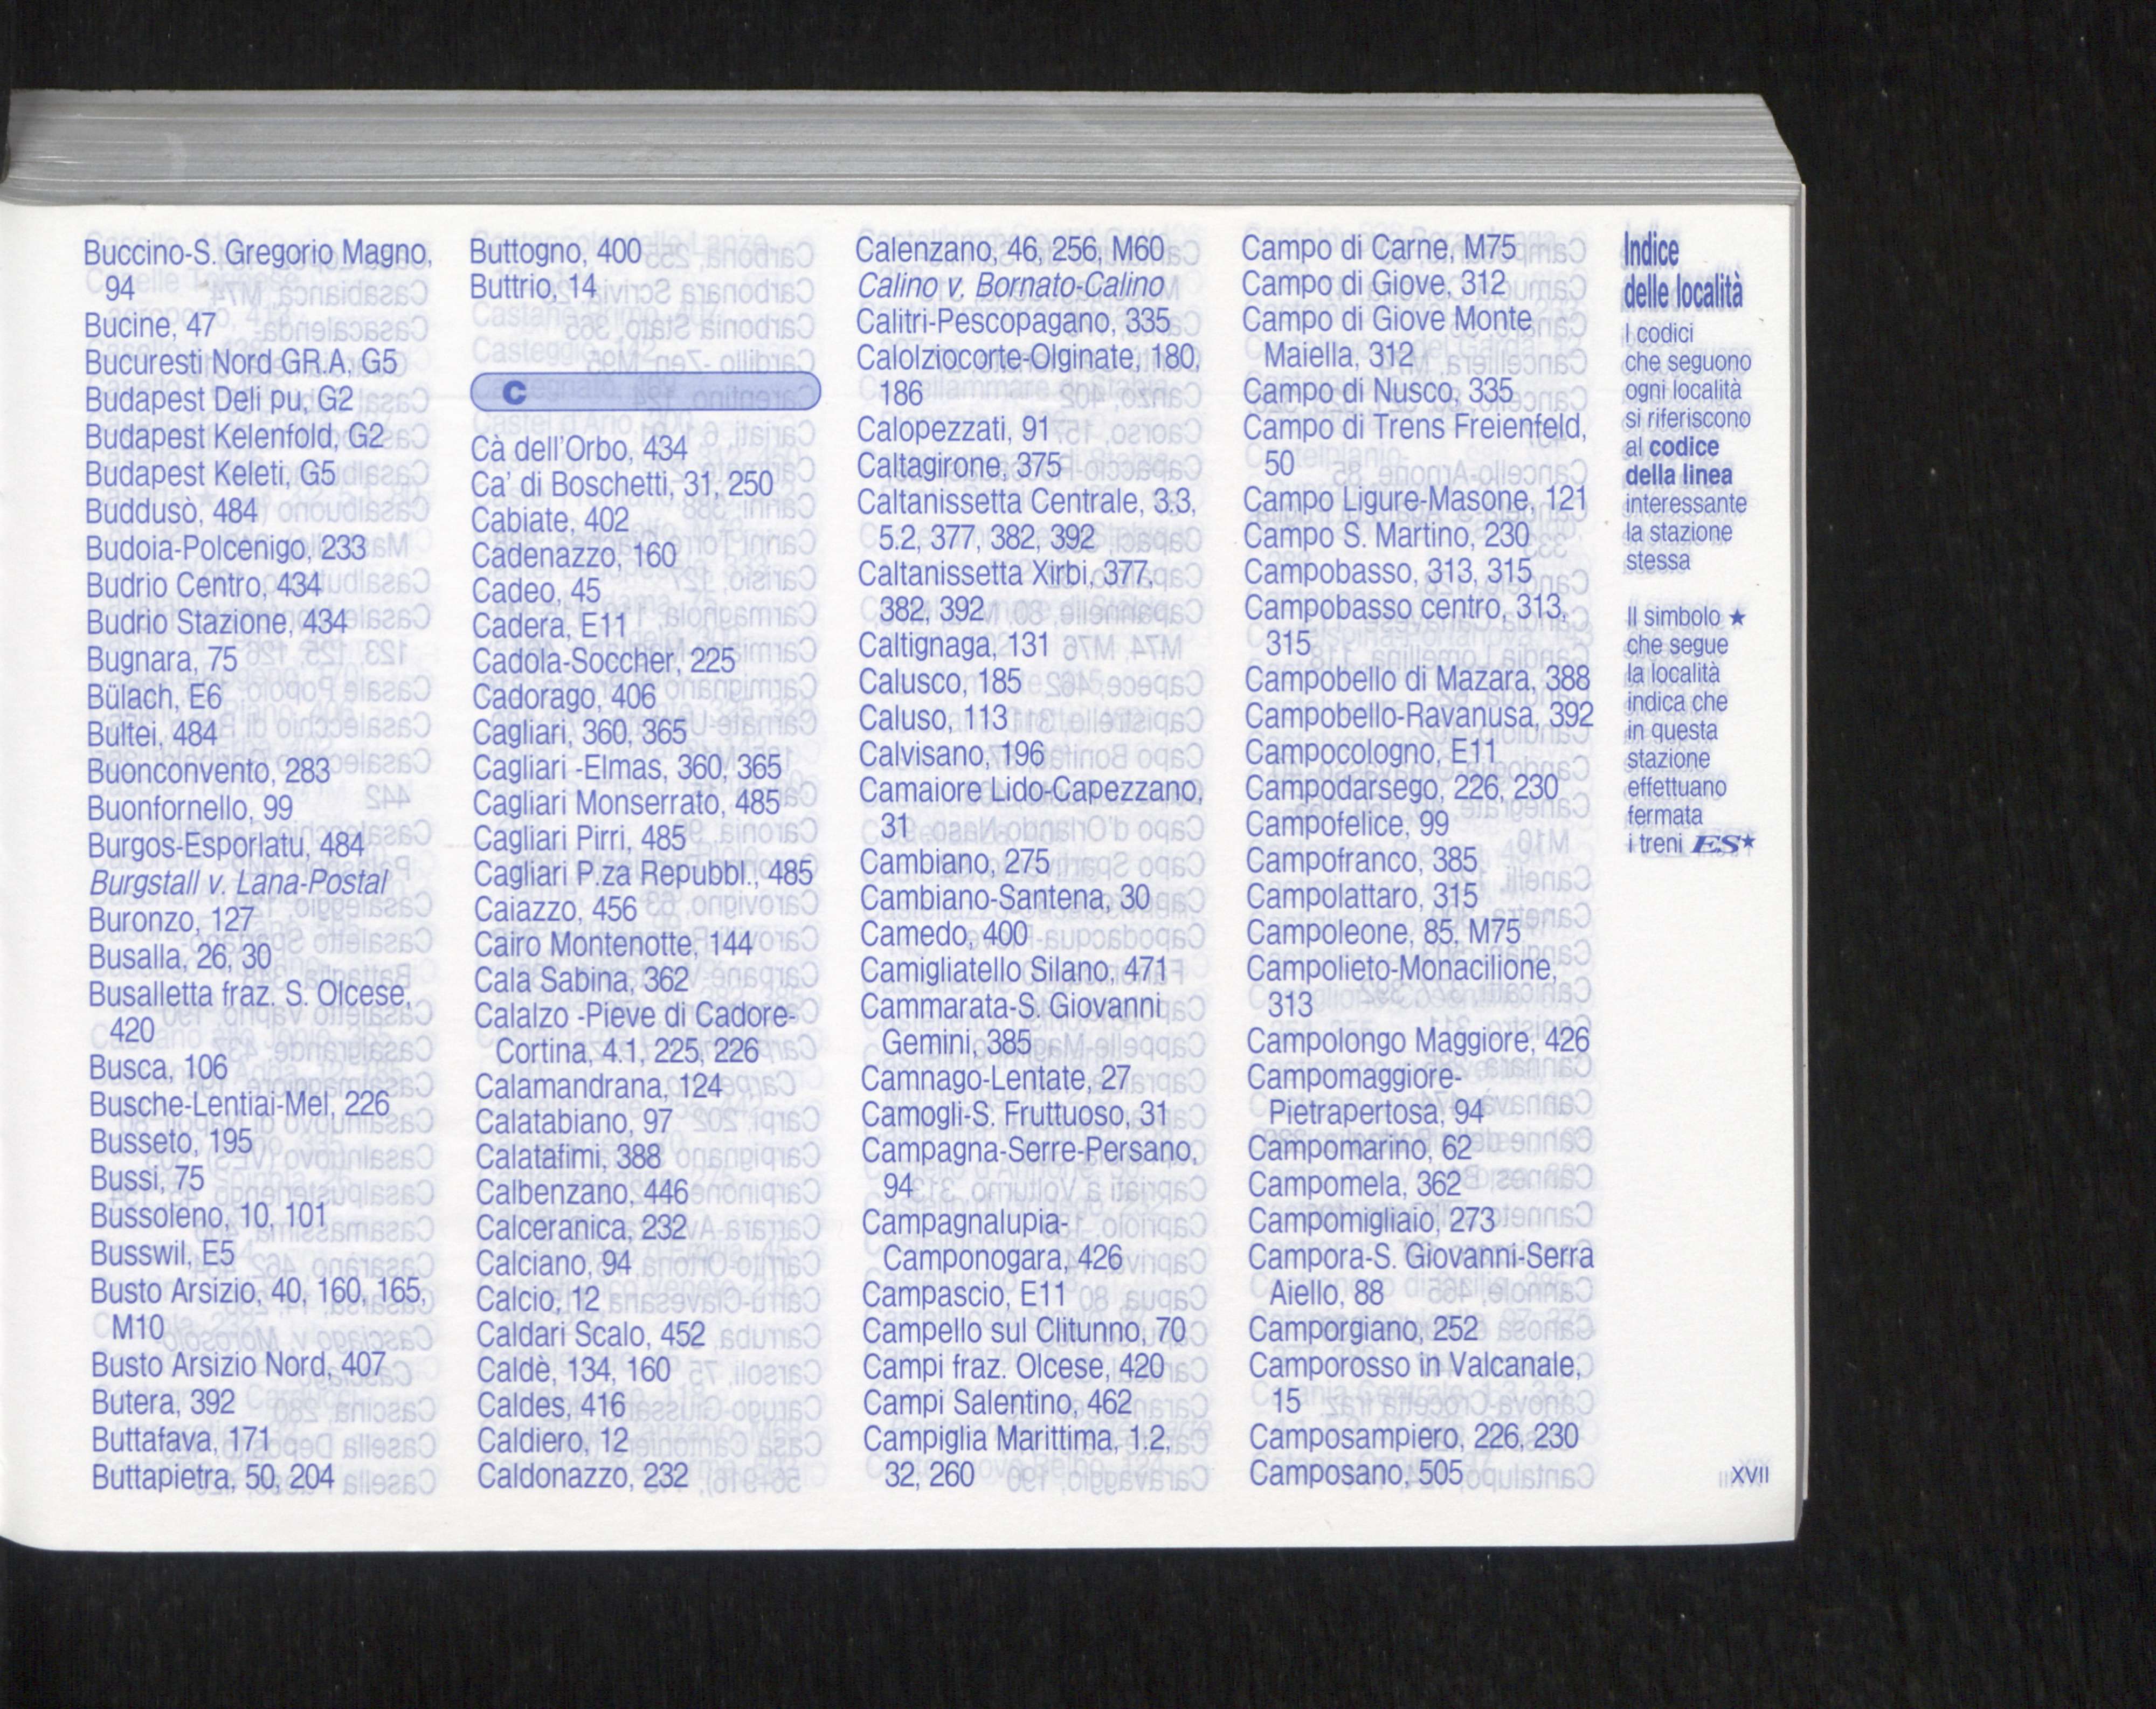 Buccino-S. Gregorio Magno,
94
Bucine, 47
Bucuresti Nord GR.A, G5
Budapest Deli pu, G2
Budapest Kelenfold, G2
Budapest Keleti, G5
Buddusò, 484
Budoia-Polcenigo, 233
Budrio Centro, 434
Budrio Stazione, 434
Bugnara, 75
Bülach, E6
Bultei, 484
Buonconvento, 283
Buonfornello, 99
Burgos-Esporlatu, 484
Burgstall v. Lana-Postal
Buronzo, 127
Busalla, 26, 30
Busalletta fraz. S. Olcese,
420
Busca, 106
Busche-Lentiai-Mel, 226
Busseto, 195
Bussi, 75
Bussoleno, 10, 101
Busswil, E5
Busto Arsizio, 40, 160, 165,
M10
Busto Arsizio Nord, 407
Butera, 392
Buttafava, 171
Buttapietra, 50, 204
Buttogno, 400
Buttrio, 14
C
Cà dell'Orbo, 434
Ca' di Boschetti, 31, 250
Cabiate, 402
Cadenazzo, 160
Cadeo, 45
Cadera, E11
Cadola-Soccher, 225
Cadorago, 406
Cagliari, 360, 365
Cagliari -Elmas, 360, 365
Cagliari Monserrato, 485
Cagliari Pirri, 485
Cagliari P.za Repubbl., 485
Caiazzo, 456
Cairo Montenotte, 144
Cala Sabina, 362
Calalzo -Pieve di Cadore-
Cortina, 4.1, 225, 226
Calamandrana, 124
Calatabiano, 97
Calatafimi, 388
Calbenzano, 446
Calceranica, 232
Calciano, 94
Calcio, 12
Caldari Scalo, 452
Caldè, 134, 160
Caldes, 416
Caldiero, 12
Caldonazzo, 232
Calenzano, 46, 256, M60
Calino v. Bornato-Calino
Calitri-Pescopagano, 335
Calolziocorte-Olginate, 180,
186
Calopezzati, 91
Caltagirone, 375
Caltanissetta Centrale, 3.3,
5.2, 377, 382, 392
Caltanissetta Xirbi, 377,
382, 392
Caltignaga, 131
Calusco, 185
Caluso, 113
Calvisano, 196
Camaiore Lido-Capezzano,
31
Cambiano, 275
Cambiano-Santena, 30
Camedo, 400
Camigliatello Silano, 471
Cammarata-S. Giovanni
Gemini, 385
Camnago-Lentate, 27
Camogli-S. Fruttuoso, 31
Campagna-Serre-Persano,
94
Campagnalupia-
Camponogara, 426
Campascio, E11
Campello sul Clitunno, 70
Campi fraz. Olcese, 420
Campi Salentino, 462
Campiglia Marittima, 1.2,
32, 260
Campo di Carne, M75
Campo di Giove, 312
Campo di Giove Monte
Maiella, 312
Campo di Nusco, 335
Campo di Trens Freienfeld,
50
Campo Ligure-Masone, 121
Campo S. Martino, 230
Campobasso, 313, 315
Campobasso centro, 313,
315
Campobello di Mazara, 388
Campobello-Ravanusa, 392
Campocologno, E11
Campodarsego, 226, 230
Campofelice, 99
Campofranco, 385
Campolattaro, 315
Campoleone, 85, M75
Campolieto-Monacilione,
313
Campolongo Maggiore, 426
Campomaggiore-
Pietrapertosa, 94
Campomarino, 62
Campomela, 362
Campomigliaio, 273
Campora-S. Giovanni-Serra
Aiello, 88
Camporgiano, 252
Camporosso in Valcanale,
15
Camposampiero, 226, 230
Camposano, 505
Indice
delle località
I codici
che seguono
ogni località
si riferiscono
al codice
della linea
interessante
la stazione
stessa
Il simbolo ★
che segue
la località
indica che
in questa
stazione
effettuano
fermata
i treni ES★
XVII